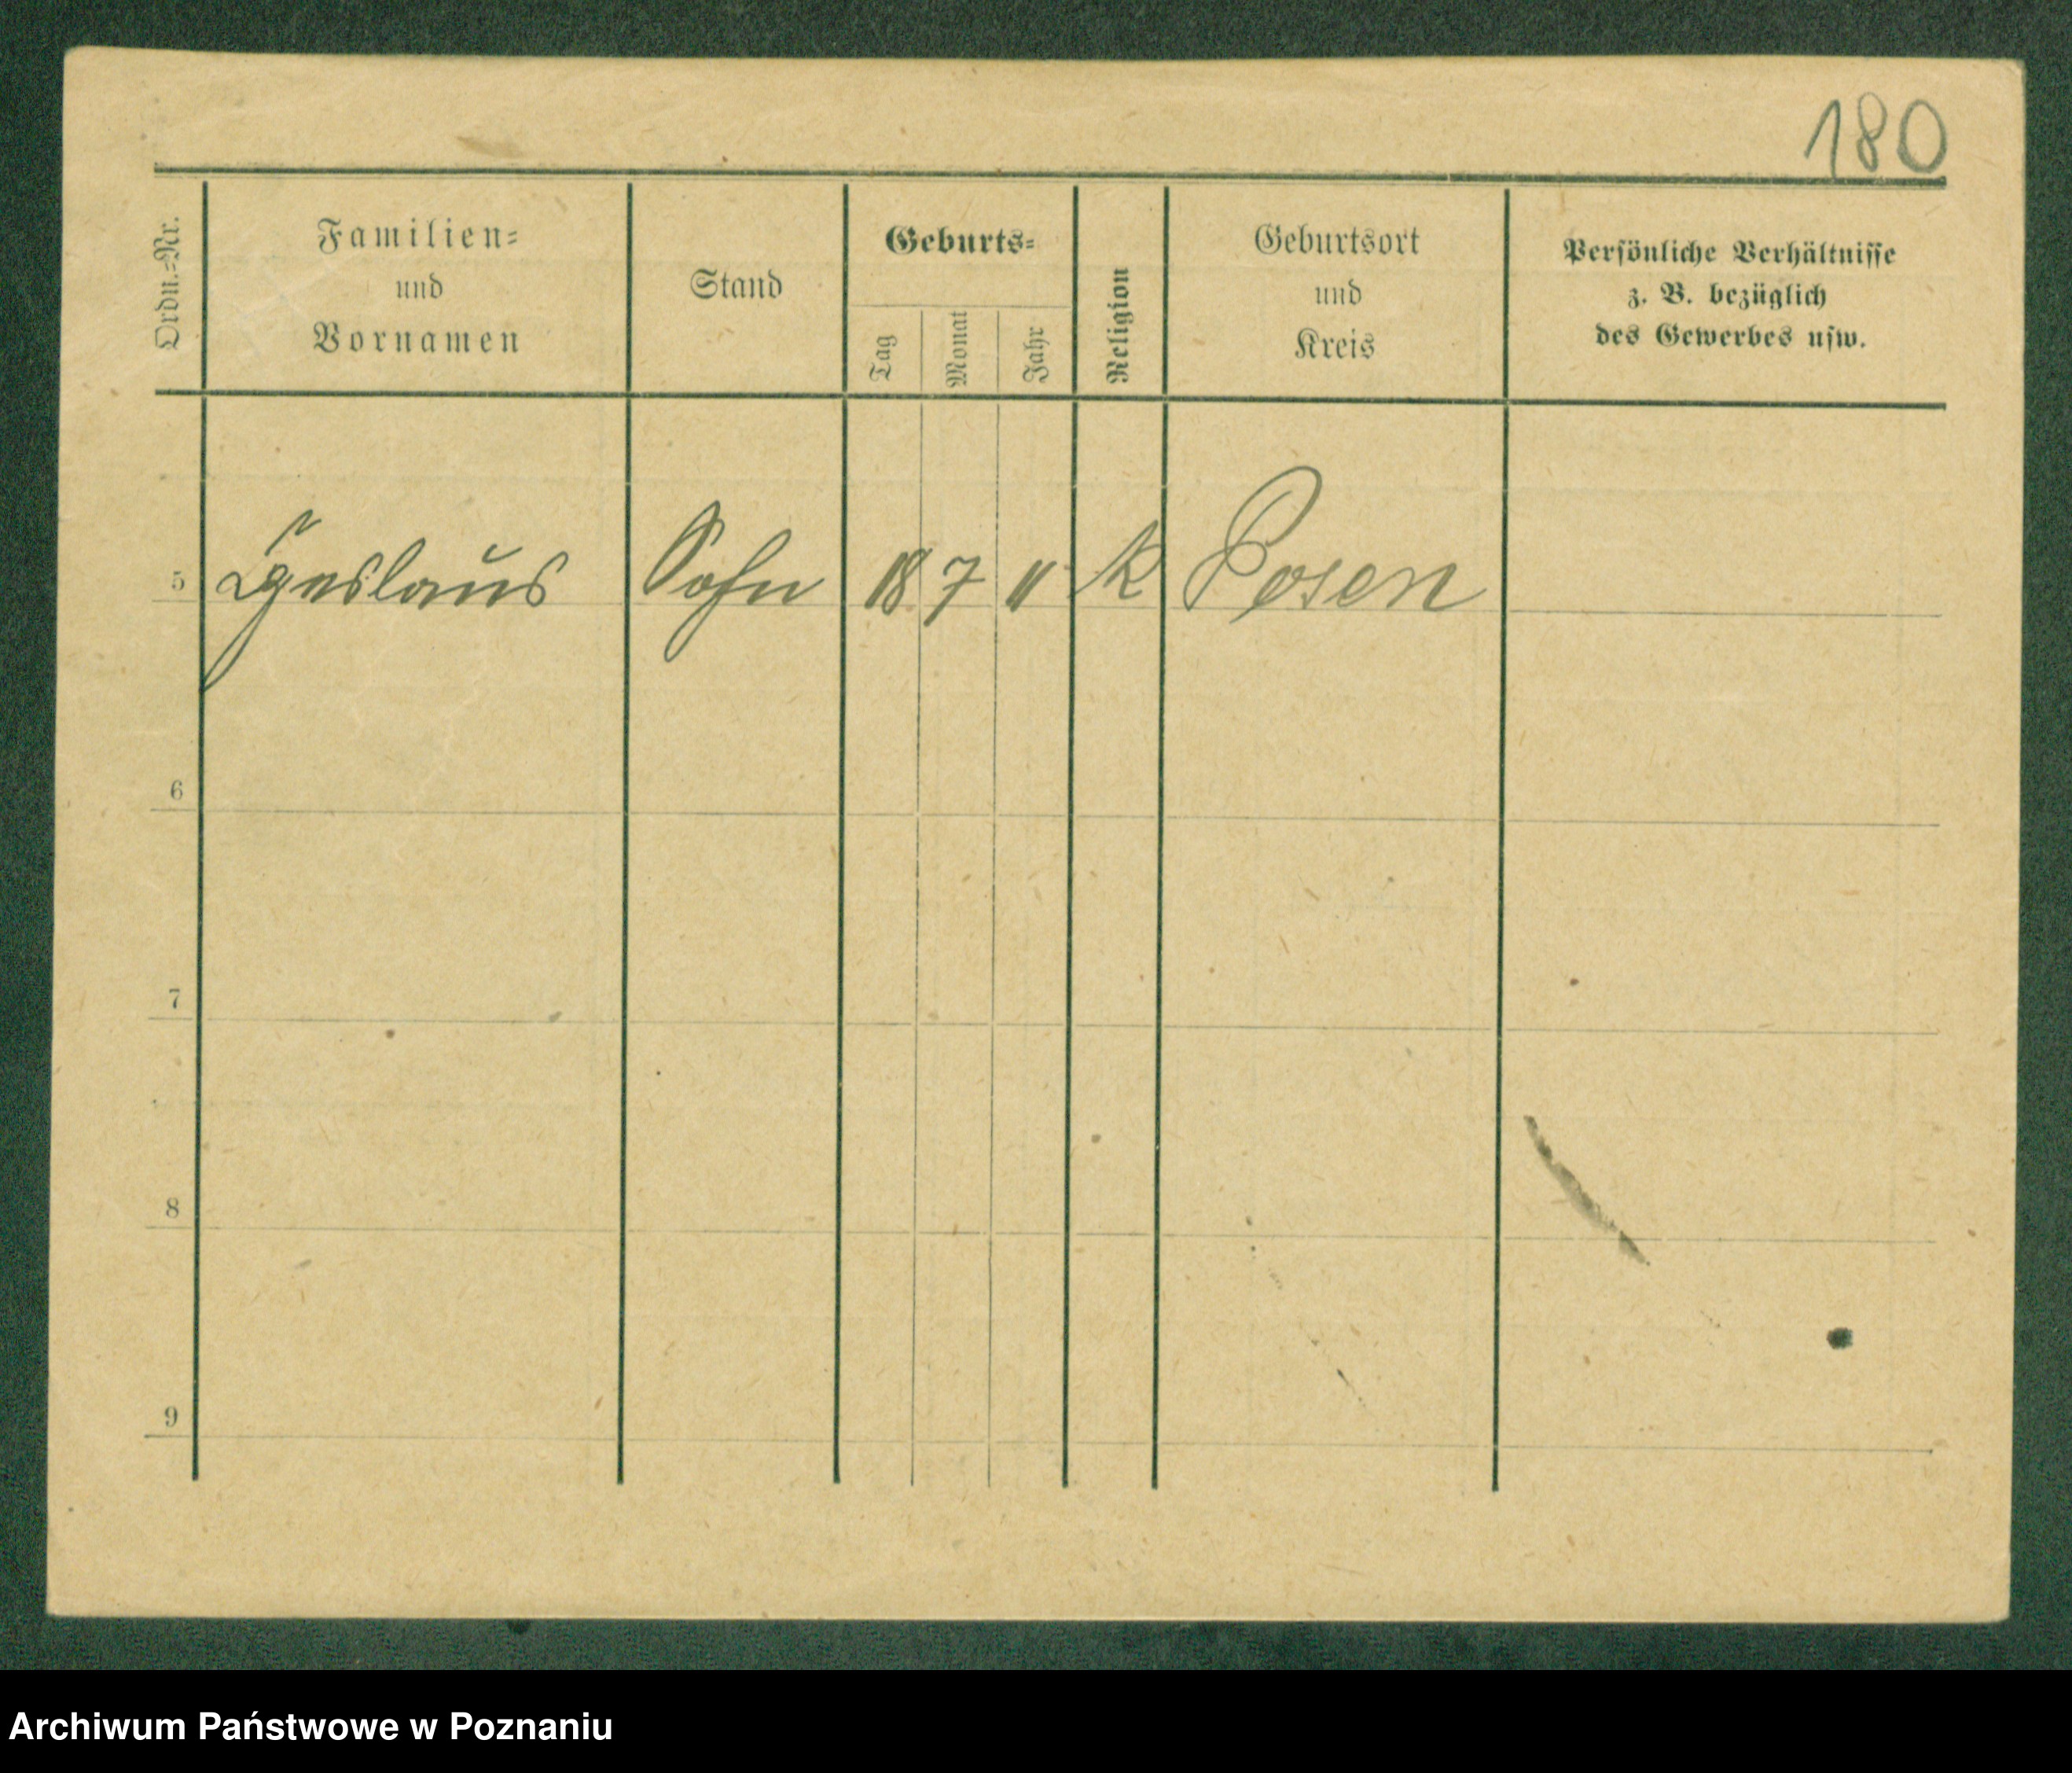 180
Ordn.=Nr.
Familien=
und
Vornamen
Stand
Geburts=
Tag
Monat
Jahr
Religion
Geburtsort
und
Kreis
Persönliche Verhältnisse
z. B. bezüglich
des Gewerbes usw.
5 Czeslaus Sohn 18 7 11 K Posen
6
7
8
9
Archiwum Państwowe w Poznaniu